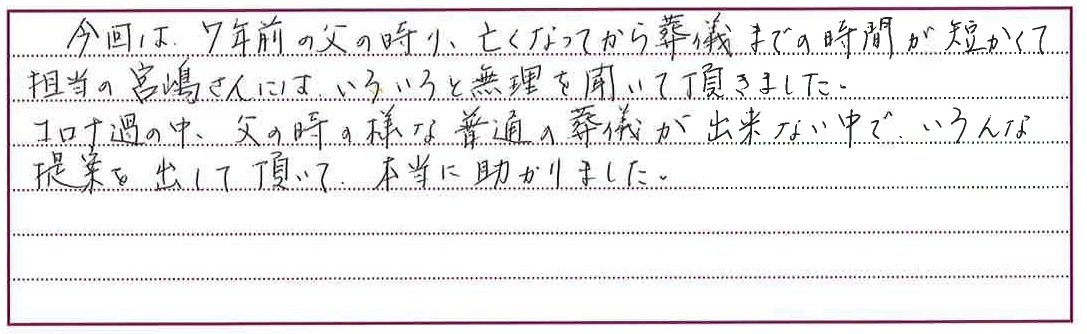 今回は、7年前の父の時より、亡くなってから葬儀までの時間が短かくて
担当の宮嶋さんには、いろいろと無理を聞いて頂きました。
コロナ過の中、父の時の様な普通の葬儀が出来ない中で、いろんな
提案を出して頂いて、本当に助かりました。